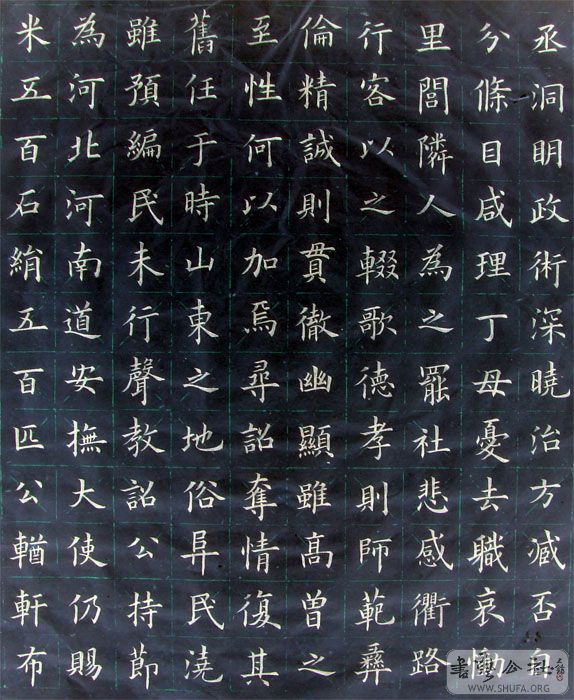 丞洞明政術深曉治方臧否自
分條目咸理丁母憂去職哀慟
里閭隣人為之罷社悲感衢路
行客以之輟歌德孝則師範彝
倫精誠則貫徹幽顯雖高曾之
至性何以加焉尋詔奪情復其
舊任于時山東之地俗阜民澆
雖預編民未行聲教詔公持節
為河北河南道安撫大使仍賜
米五百石絹五百匹公輶軒布
WWW.SHUFA.ORG